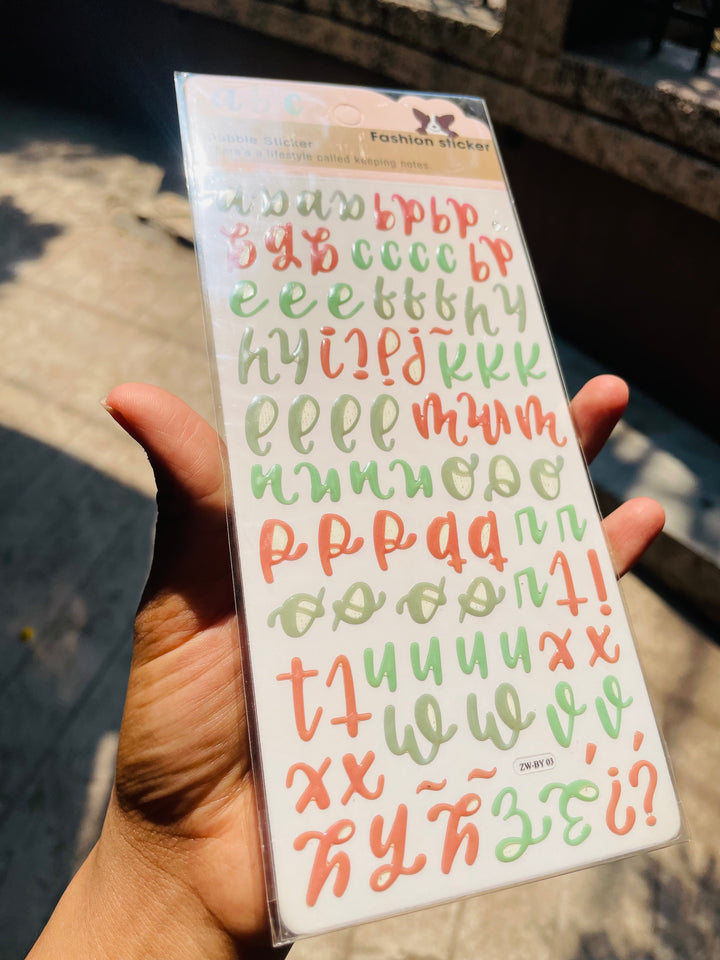 a b c
Bubble Sticker
Fashion sticker
there's a lifestyle called keeping notes.
c c c c
e e e
k k k
l l l l m m m
n n n n o o o
p p p q q r r
r t !
t t u u u u x x
w w v v
ZW-BY 03
x x
y y y z z ¿ ?